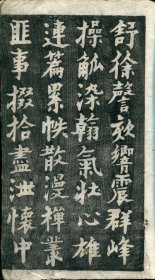 舒徐謦欬響震群峰
操觚染翰氣壯心雄
連篇累帙散漫樨叢
匪事掇拾盡泄懷中